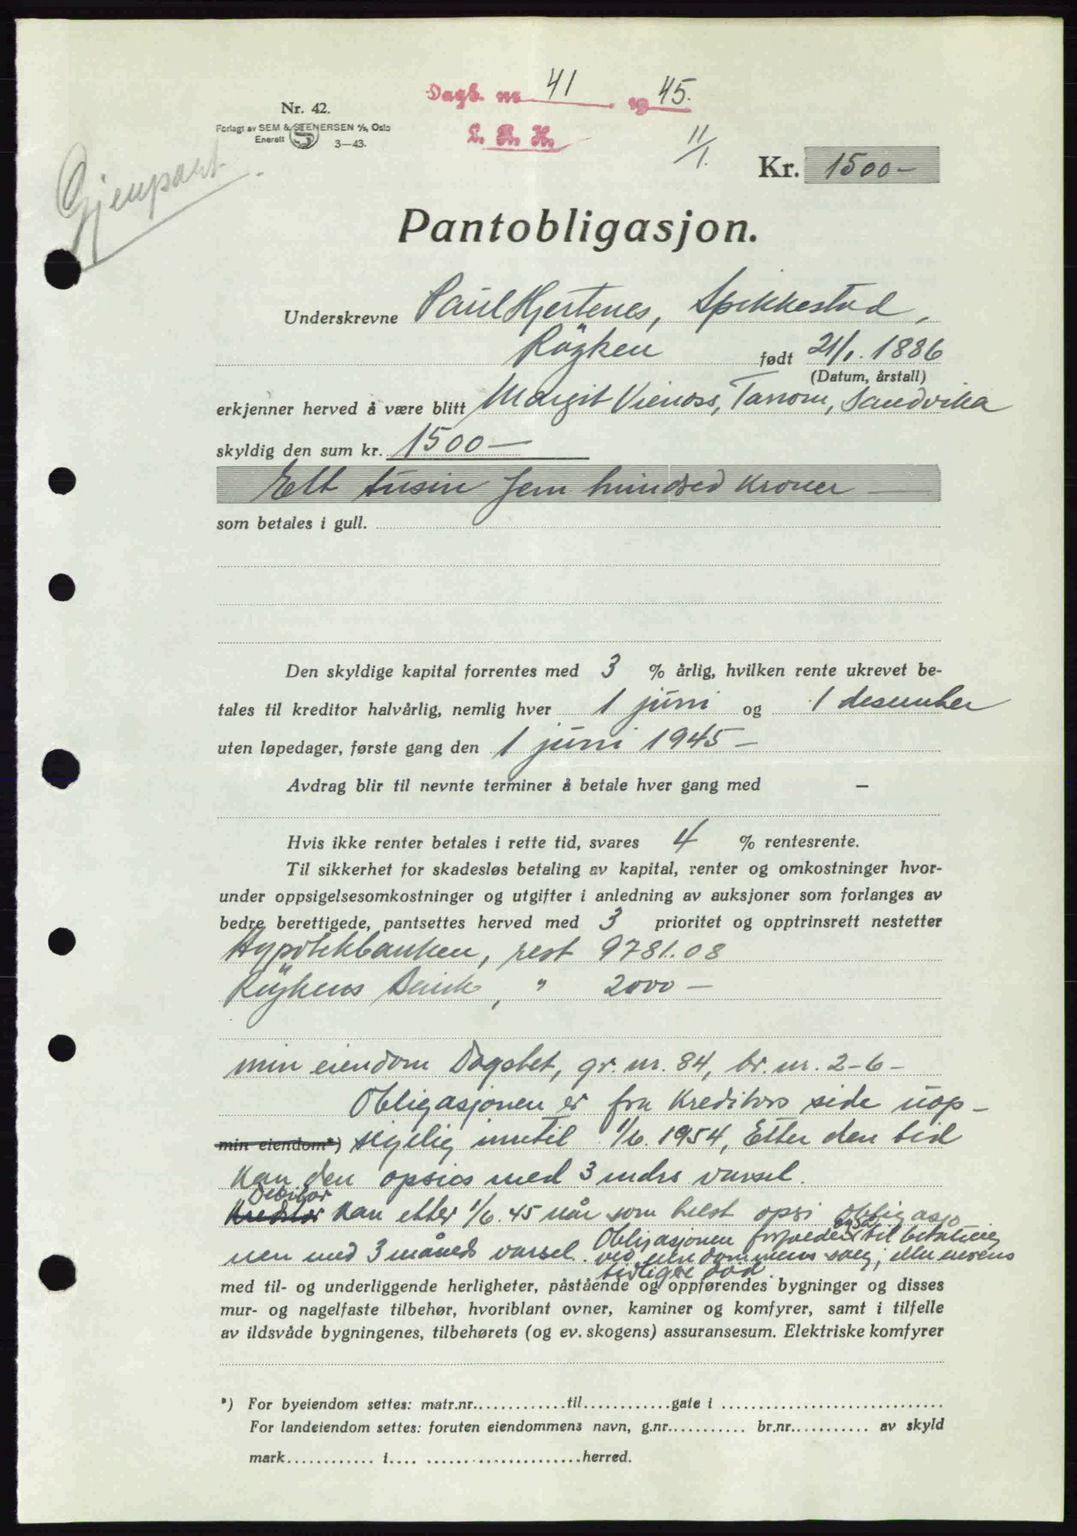 Dagb. nr. 41 1945.
Nr. 42.
Forlagt av SEM & STENERSEN A/S, Oslo
Enerett S 3—43.
L. R. H.
11/1.
Gjenpart.
Kr. 1500-
Pantobligasjon.
Underskrevne Paul Hjertenes, Spikkestad,
Röyken født 21/1. 1886
(Datum, årstall)
erkjenner herved å være blitt Margit
skyldig den sum kr. 1500—
Ett tusin fem hundred kroner —
som betales i gull.
Den skyldige kapital forrentes med 3 % årlig, hvilken rente ukrevet be-
tales til kreditor halvårlig, nemlig hver 1 juni og 1 desember
uten løpedager, første gang den 1 juni 1945 -
Avdrag blir til nevnte terminer å betale hver gang med —
Hvis ikke renter betales i rette tid, svares 4 % rentesrente.
Til sikkerhet for skadesløs betaling av kapital, renter og omkostninger hvor-
under oppsigelsesomkostninger og utgifter i anledning av auksjoner som forlanges av
bedre berettigede, pantsettes herved med 3 prioritet og opptrinsrett nestetter
Hypotekbanken, rest 9781.08
Röykens Bank, " 2000 —
min eiendom gr. nr. 84, br. nr. 2-6 -
Obligasjonen er fra Kreditors side uop-
min eiendom*) sigelig inntil 1/6. 1954, Etter den tid
kan den opsies med 3 mdrs varsel.
Debitor
Kreditor kan etter 1/6. 45 når som helst opsi obligasjo
nen med 3 måneds varsel. Obligasjonen forfalder også til betaling
ved eiendommens salg, eller eierens
tidligere död.
med til- og underliggende herligheter, påstående og oppførendes bygninger og disses
mur- og nagelfaste tilbehør, hvoriblant ovner, kaminer og komfyrer, samt i tilfelle
av ildsvåde bygningenes, tilbehørets (og ev. skogens) assuransesum. Elektriske komfyrer
*) For byeiendom settes: matr.nr.............til............gate i ..............................
For landeiendom settes: foruten eiendommens navn, g.nr........... br.nr........... av skyld
mark............ i.... ......................herred.